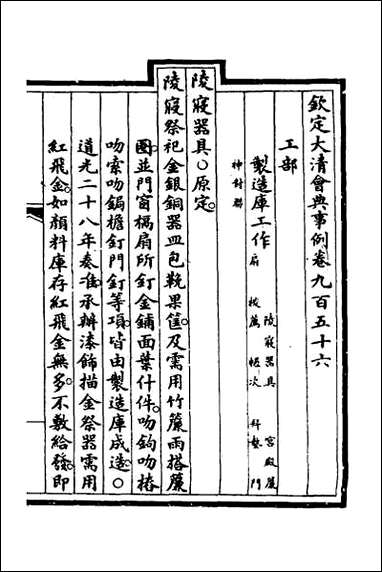 欽定大清會典事例卷九百五十六
工部
製造庫工作 陵寢器具 宮殿簾
扇 帳次 門
神封聯
陵寢器具○原定。
陵寢祭祀金銀銅器皿包鞔果筐。及需用竹簾雨搭簾
圈。並門窗槅扇所釘金鋪面葉什件。吻鉤吻樁
吻索吻鋦檐釘門釘等項。皆由製造庫成造。○
道光二十八年奏准。承辦漆飾描金祭器需用
紅飛金。如顏料庫存紅飛金無多。不敷給發。即